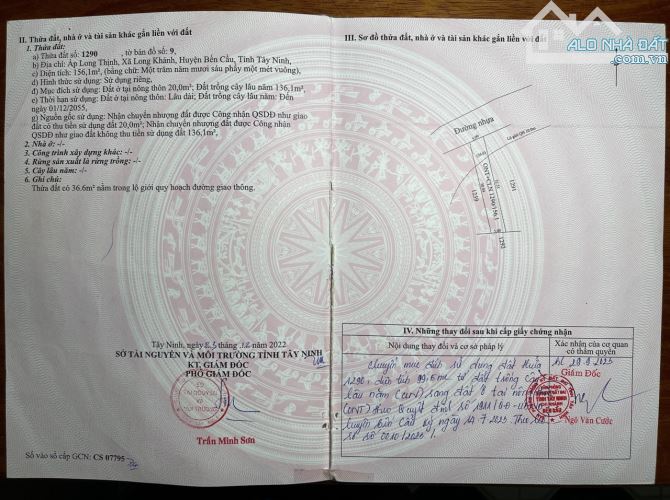 II. Thửa đất, nhà ở và tài sản khác gắn liền với đất
1. Thửa đất:
a) Thửa đất số: 1290 , tờ bản đồ số: 9,
b) Địa chỉ: Ấp Long Thịnh, Xã Long Khánh, Huyện Bến Cầu, Tỉnh Tây Ninh,
c) Diện tích: 156,1m², (bằng chữ: Một trăm năm mươi sáu phẩy một mét vuông),
d) Hình thức sử dụng: Sử dụng riêng,
đ) Mục đích sử dụng: Đất ở tại nông thôn 20,0m²; Đất trồng cây lâu năm 136,1m²,
e) Thời hạn sử dụng: Đất ở tại nông thôn: Lâu dài; Đất trồng cây lâu năm: Đến
ngày 01/12/2055,
g) Nguồn gốc sử dụng: Nhận chuyển nhượng đất được Công nhận QSDĐ như giao
đất có thu tiền sử dụng đất 20,0m²; Nhận chuyển nhượng đất được Công nhận
QSDĐ như giao đất không thu tiền sử dụng đất 136,1m²,
2. Nhà ở: -/-
3. Công trình xây dựng khác: -/-
4. Rừng sản xuất là rừng trồng: -/-
5. Cây lâu năm: -/-
6. Ghi chú:
Thửa đất có 36.6m² nằm trong lộ giới quy hoạch đường giao thông.
Tây Ninh, ngày 23 tháng 12 năm 2022
SỞ TÀI NGUYÊN VÀ MÔI TRƯỜNG TỈNH TÂY NINH
KT. GIÁM ĐỐC
PHÓ GIÁM ĐỐC
Trần Minh Sơn
Số vào sổ cấp GCN: CS 07795
ALO NHÀ ĐẤT
.com.vn
III. Sơ đồ thửa đất, nhà ở và tài sản khác gắn liền với đất
Đường nhựa
1291
1259
ONT+CLN 1290/156.1
1292
IV. Những thay đổi sau khi cấp giấy chứng nhận
Nội dung thay đổi và cơ sở pháp lý
Xác nhận của cơ quan
có thẩm quyền
Chuyển mục đích sử dụng đất thửa
1290 diện tích 99,5m² từ đất trồng cây
lâu năm (CLN) sang đất ở tại nông
(ONT) theo Quyết định số
huyện Bến Cầu ký ngày 14.7.2023. Theo hồ
sơ số
Giám Đốc
Ngô Văn Cước